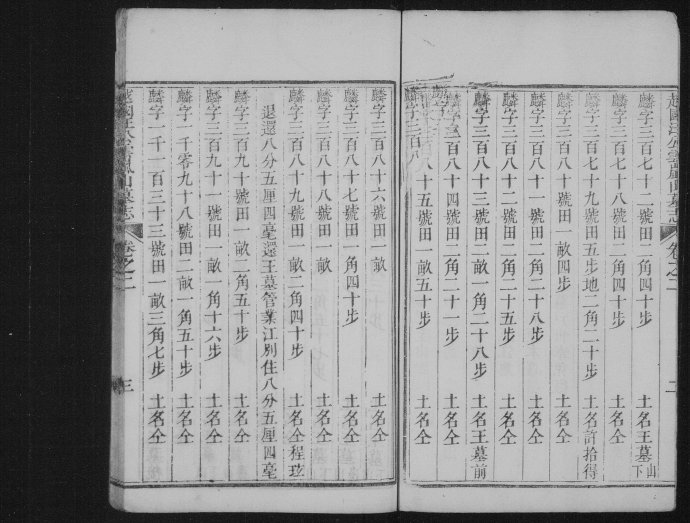 麟字三百七十七號田一畝二角四十步 土名王墓山下
麟字三百七十八號田二角四十步 土名仝
麟字三百七十九號田五步地二角二十步 土名許拾得
麟字三百八十號田一畝四步 土名仝
麟字三百八十一號田二角二十八步 土名仝
麟字三百八十二號田二角二十五步 土名仝
麟字三百八十三號田一畝一角二十八步 土名王墓前
麟字三百八十四號田二角二十一步 土名仝
麟字三百八十五號田一畝五十步 土名仝
卷之二
二
麟字三百八十六號田一畝 土名仝
麟字三百八十七號田一角四十步 土名仝
麟字三百八十八號田一畝 土名仝
麟字三百八十九號田一畝二角四十步 土名仝程玹
退還八分五厘四毫還王墓管業江別住八分五厘四毫
麟字三百九十號田一畝二角五十步 土名仝
麟字三百九十一號田一畝一角十六步 土名仝
麟字一千零九十八號田二畝一角五十步 土名仝
麟字一千一百三十三號田一畝三角七步 土名仝
卷之二
三